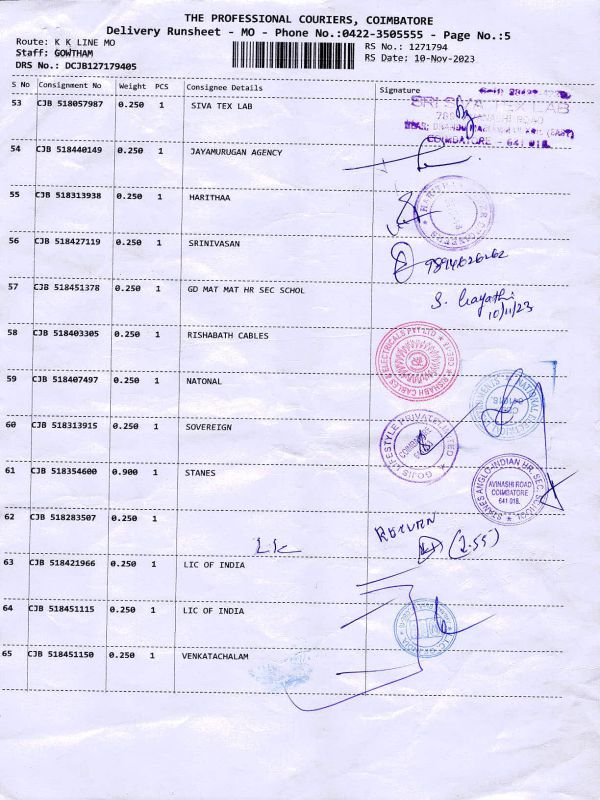 THE PROFESSIONAL COURIERS, COIMBATORE
Delivery Runsheet - MO - Phone No.:0422-3505555 - Page No.:5
Route: K K LINE MO
RS No.: 1271794
Staff: GOWTHAM
RS Date: 10-Nov-2023
DRS No.: DCJB127179405
S No Consignment No Weight PCS Consignee Details Signature
53 CJB 518057987 0.250 1 SIVA TEX LAB
SRI SIVA TEX LAB
COIMBATORE - 641 018.
54 CJB 518440149 0.250 1 JAYAMURUGAN AGENCY
55 CJB 518313938 0.250 1 HARITHAA
56 CJB 518427119 0.250 1 SRINIVASAN
57 CJB 518451378 0.250 1 GD MAT MAT HR SEC SCHOL
S. Gayathri
10/11/23
58 CJB 518403305 0.250 1 RISHABATH CABLES
RISHABH CABLES & ELECTRICALS PVT LTD
59 CJB 518407497 0.250 1 NATONAL
60 CJB 518313915 0.250 1 SOVEREIGN
LIFESTYLE PRIVATE LIMITED
COIMBATORE
61 CJB 518354600 0.900 1 STANES
STANES ANGLO-INDIAN HR. SEC. SCHOOL
AVINASHI ROAD
COIMBATORE
641 018.
62 CJB 518283507 0.250 1
RETURN
(2.55)
63 CJB 518421966 0.250 1 LIC OF INDIA
64 CJB 518451115 0.250 1 LIC OF INDIA
65 CJB 518451150 0.250 1 VENKATACHALAM